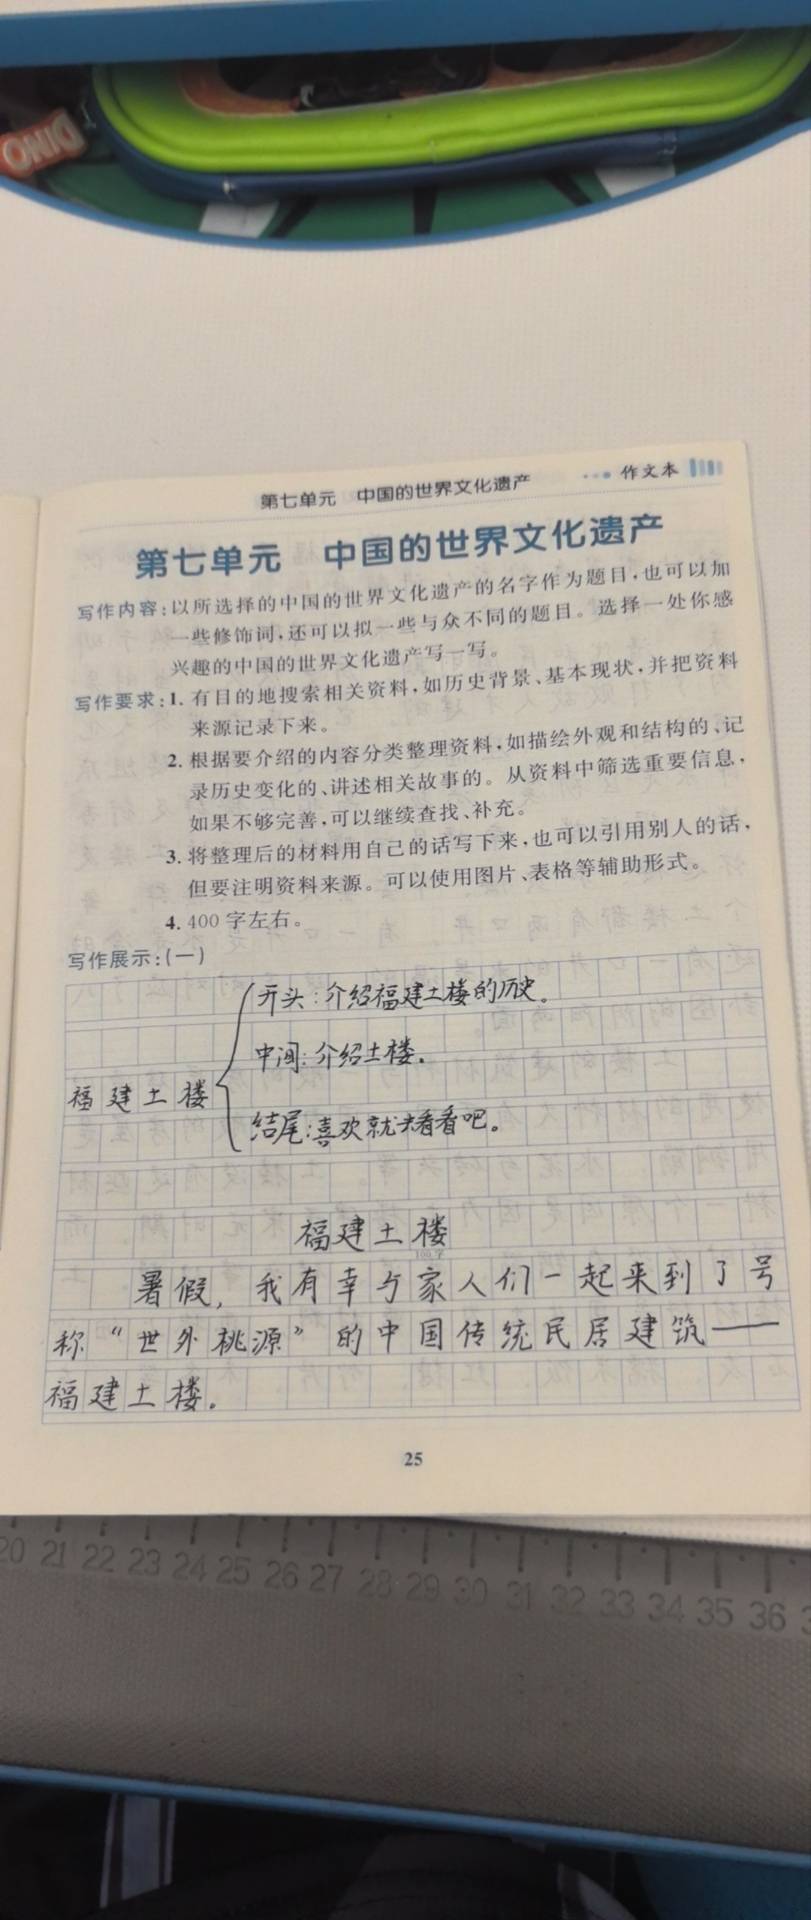 DINO
第七单元 中国的世界文化遗产 作文本
第七单元 中国的世界文化遗产
写作内容:以所选择的中国的世界文化遗产的名字作为题目,也可以加
一些修饰词,还可以拟一些与众不同的题目。选择一处你感
兴趣的中国的世界文化遗产写一写。
写作要求:1. 有目的地搜索相关资料,如历史背景、基本现状,并把资料
来源记录下来。
2. 根据要介绍的内容分类整理资料,如描绘外观和结构的、记
录历史变化的、讲述相关故事的。从资料中筛选重要信息,
如果不够完善,可以继续查找、补充。
3. 将整理后的材料用自己的话写下来,也可以引用别人的话,
但要注明资料来源。可以使用图片、表格等辅助形式。
4. 400字左右。
写作展示:(一)
开头:介绍福建土楼的历史。
中间:介绍土楼。
福建土楼
结尾:喜欢就去看看吧。
福建土楼
100字
暑假,我有幸与家人们一起来到了号
称“世外桃源”的中国传统民居建筑——
福建土楼。
25
20 21 22 23 24 25 26 27 28 29 30 31 32 33 34 35 36